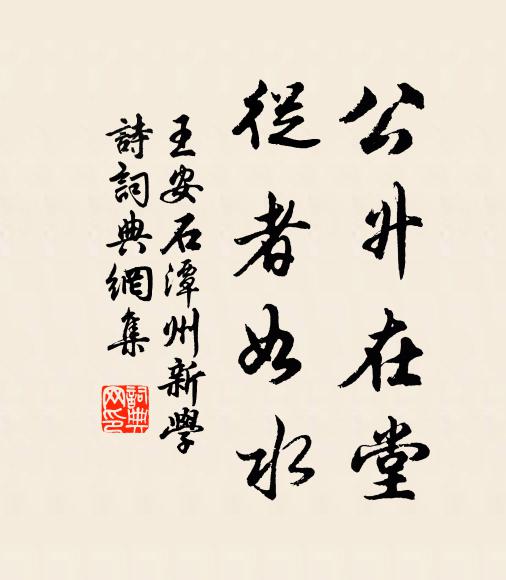 公升在堂
從者如水
王安石潭州新學
詩詞典網集
詞典網印